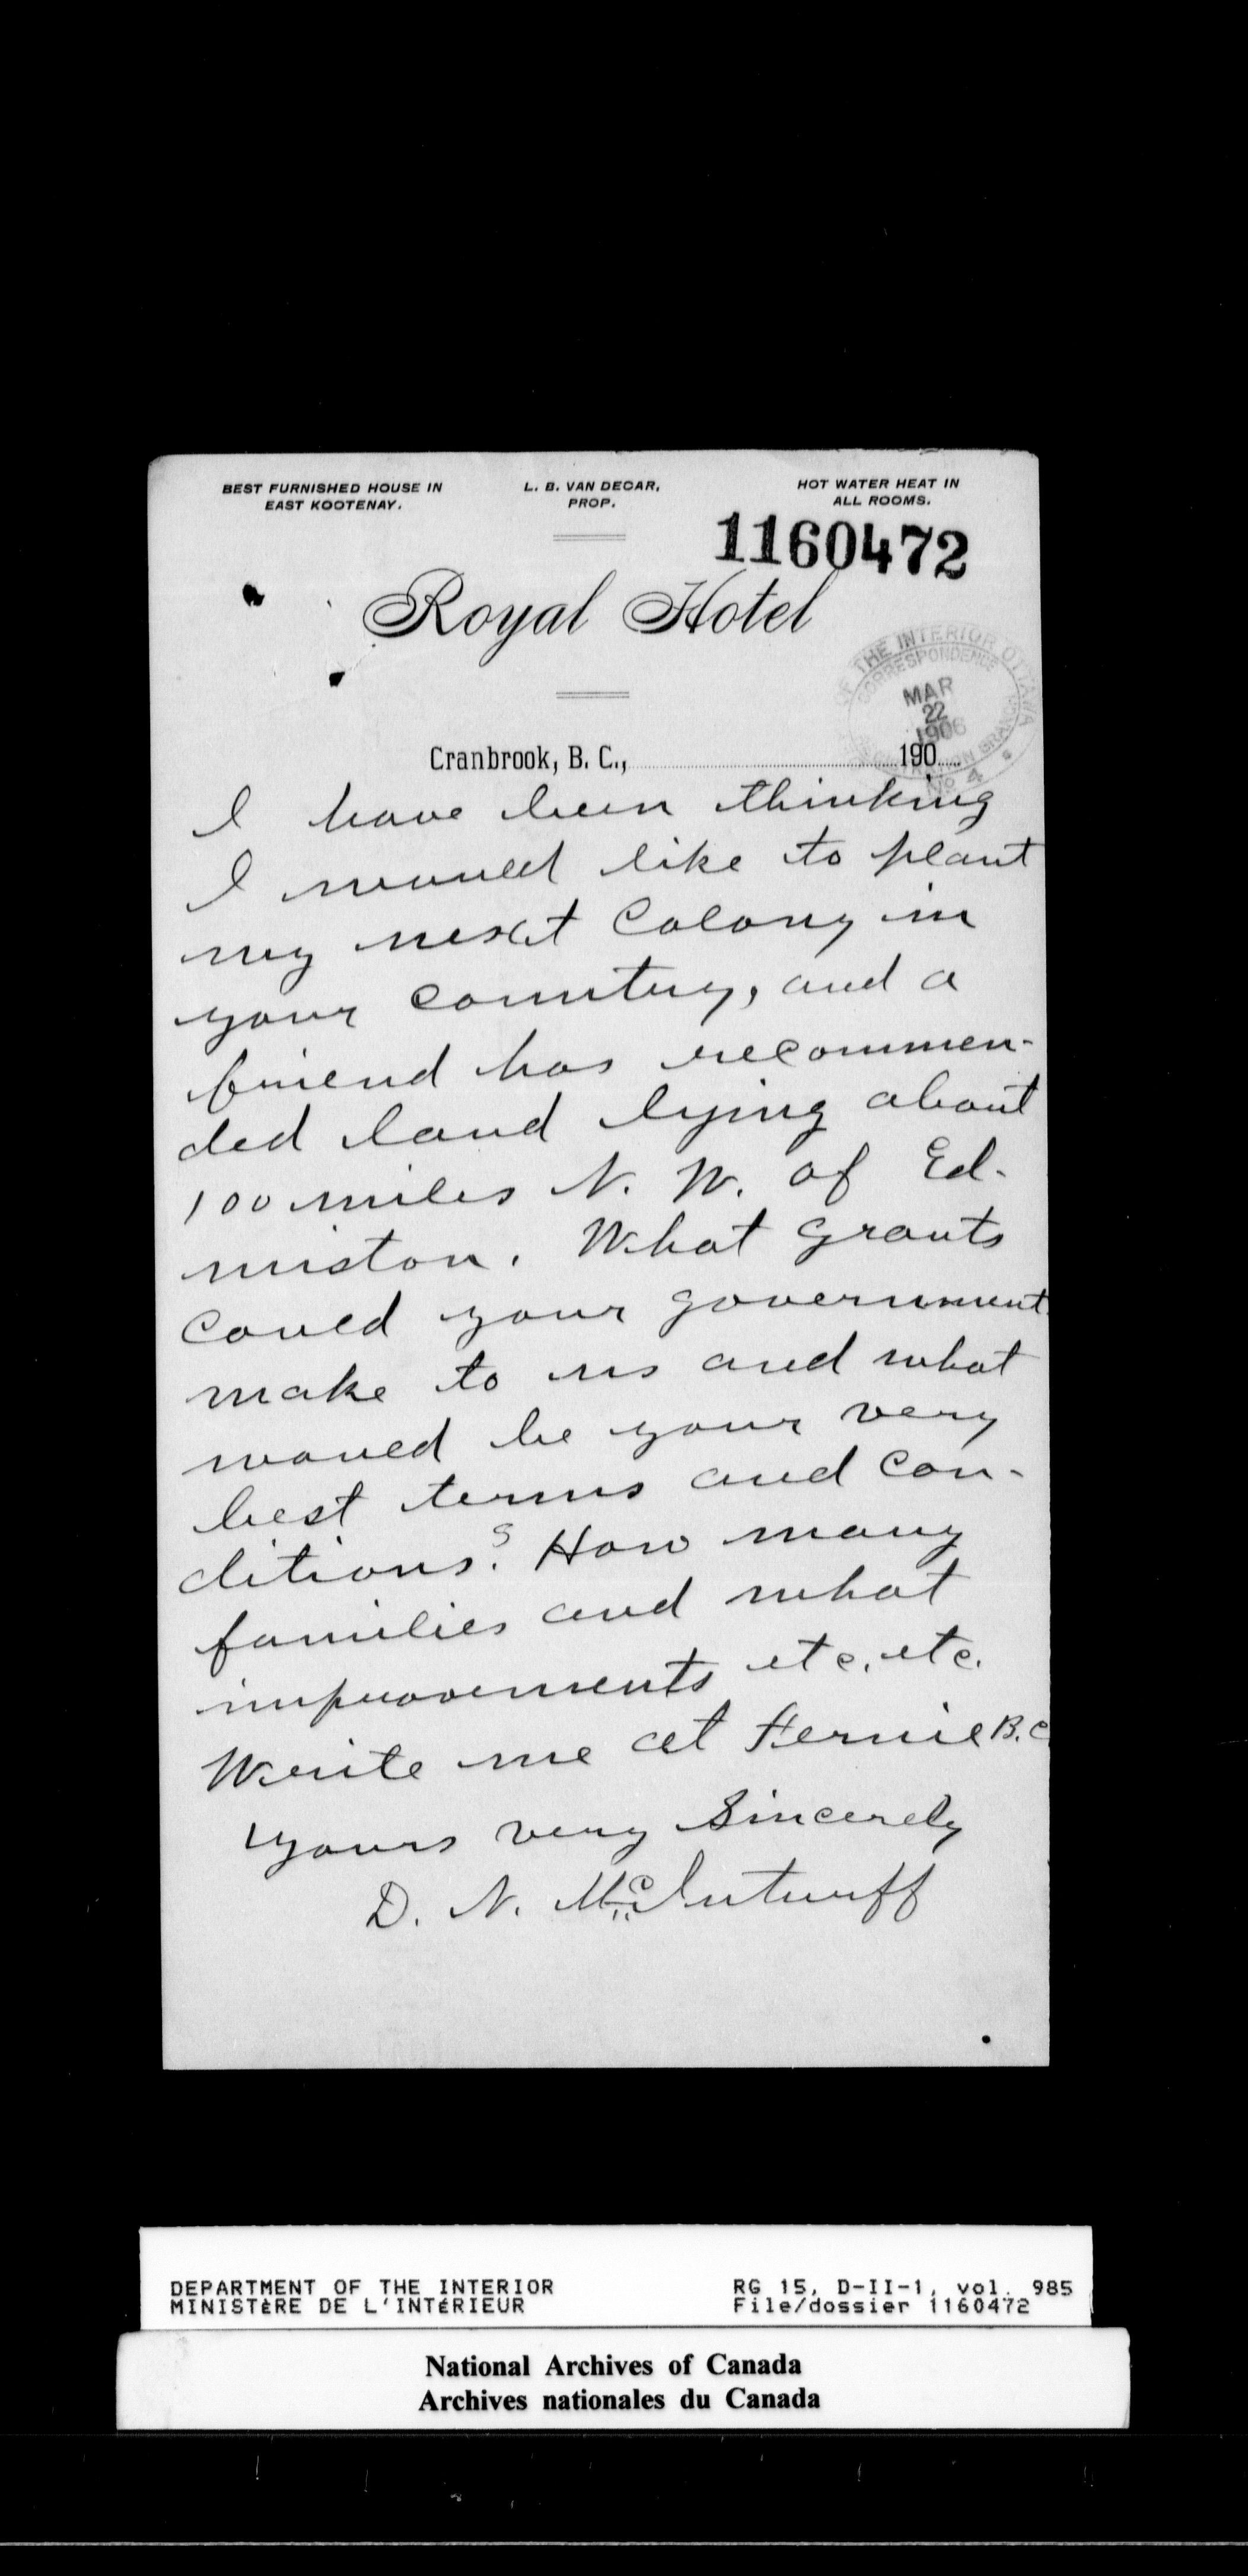 BEST FURNISHED HOUSE IN
EAST KOOTENAY.
L. B. VAN DECAR,
PROP.
HOT WATER HEAT IN
ALL ROOMS.
1160472
Royal Hotel
OF THE INTERIOR OTTAWA
CORRESPONDENCE
MAR
22
1906
REGISTRATION BRANCH
No 4
Cranbrook, B. C., 190
I have been thinking
I would like to plant
my next Colony in
your Country, and a
friend has recommen-
ded land lying about
100 miles N. W. of Ed-
miston. What grants
could your government
make to us and what
would be your very
best terms and con-
ditions? How many
families and what
improvements etc. etc.
Write me at Fernie B.C
Yours very Sincerely
D. N. McInturff
DEPARTMENT OF THE INTERIOR
MINISTÈRE DE L'INTÉRIEUR
RG 15, D-II-1, vol. 985
File/dossier 1160472
National Archives of Canada
Archives nationales du Canada